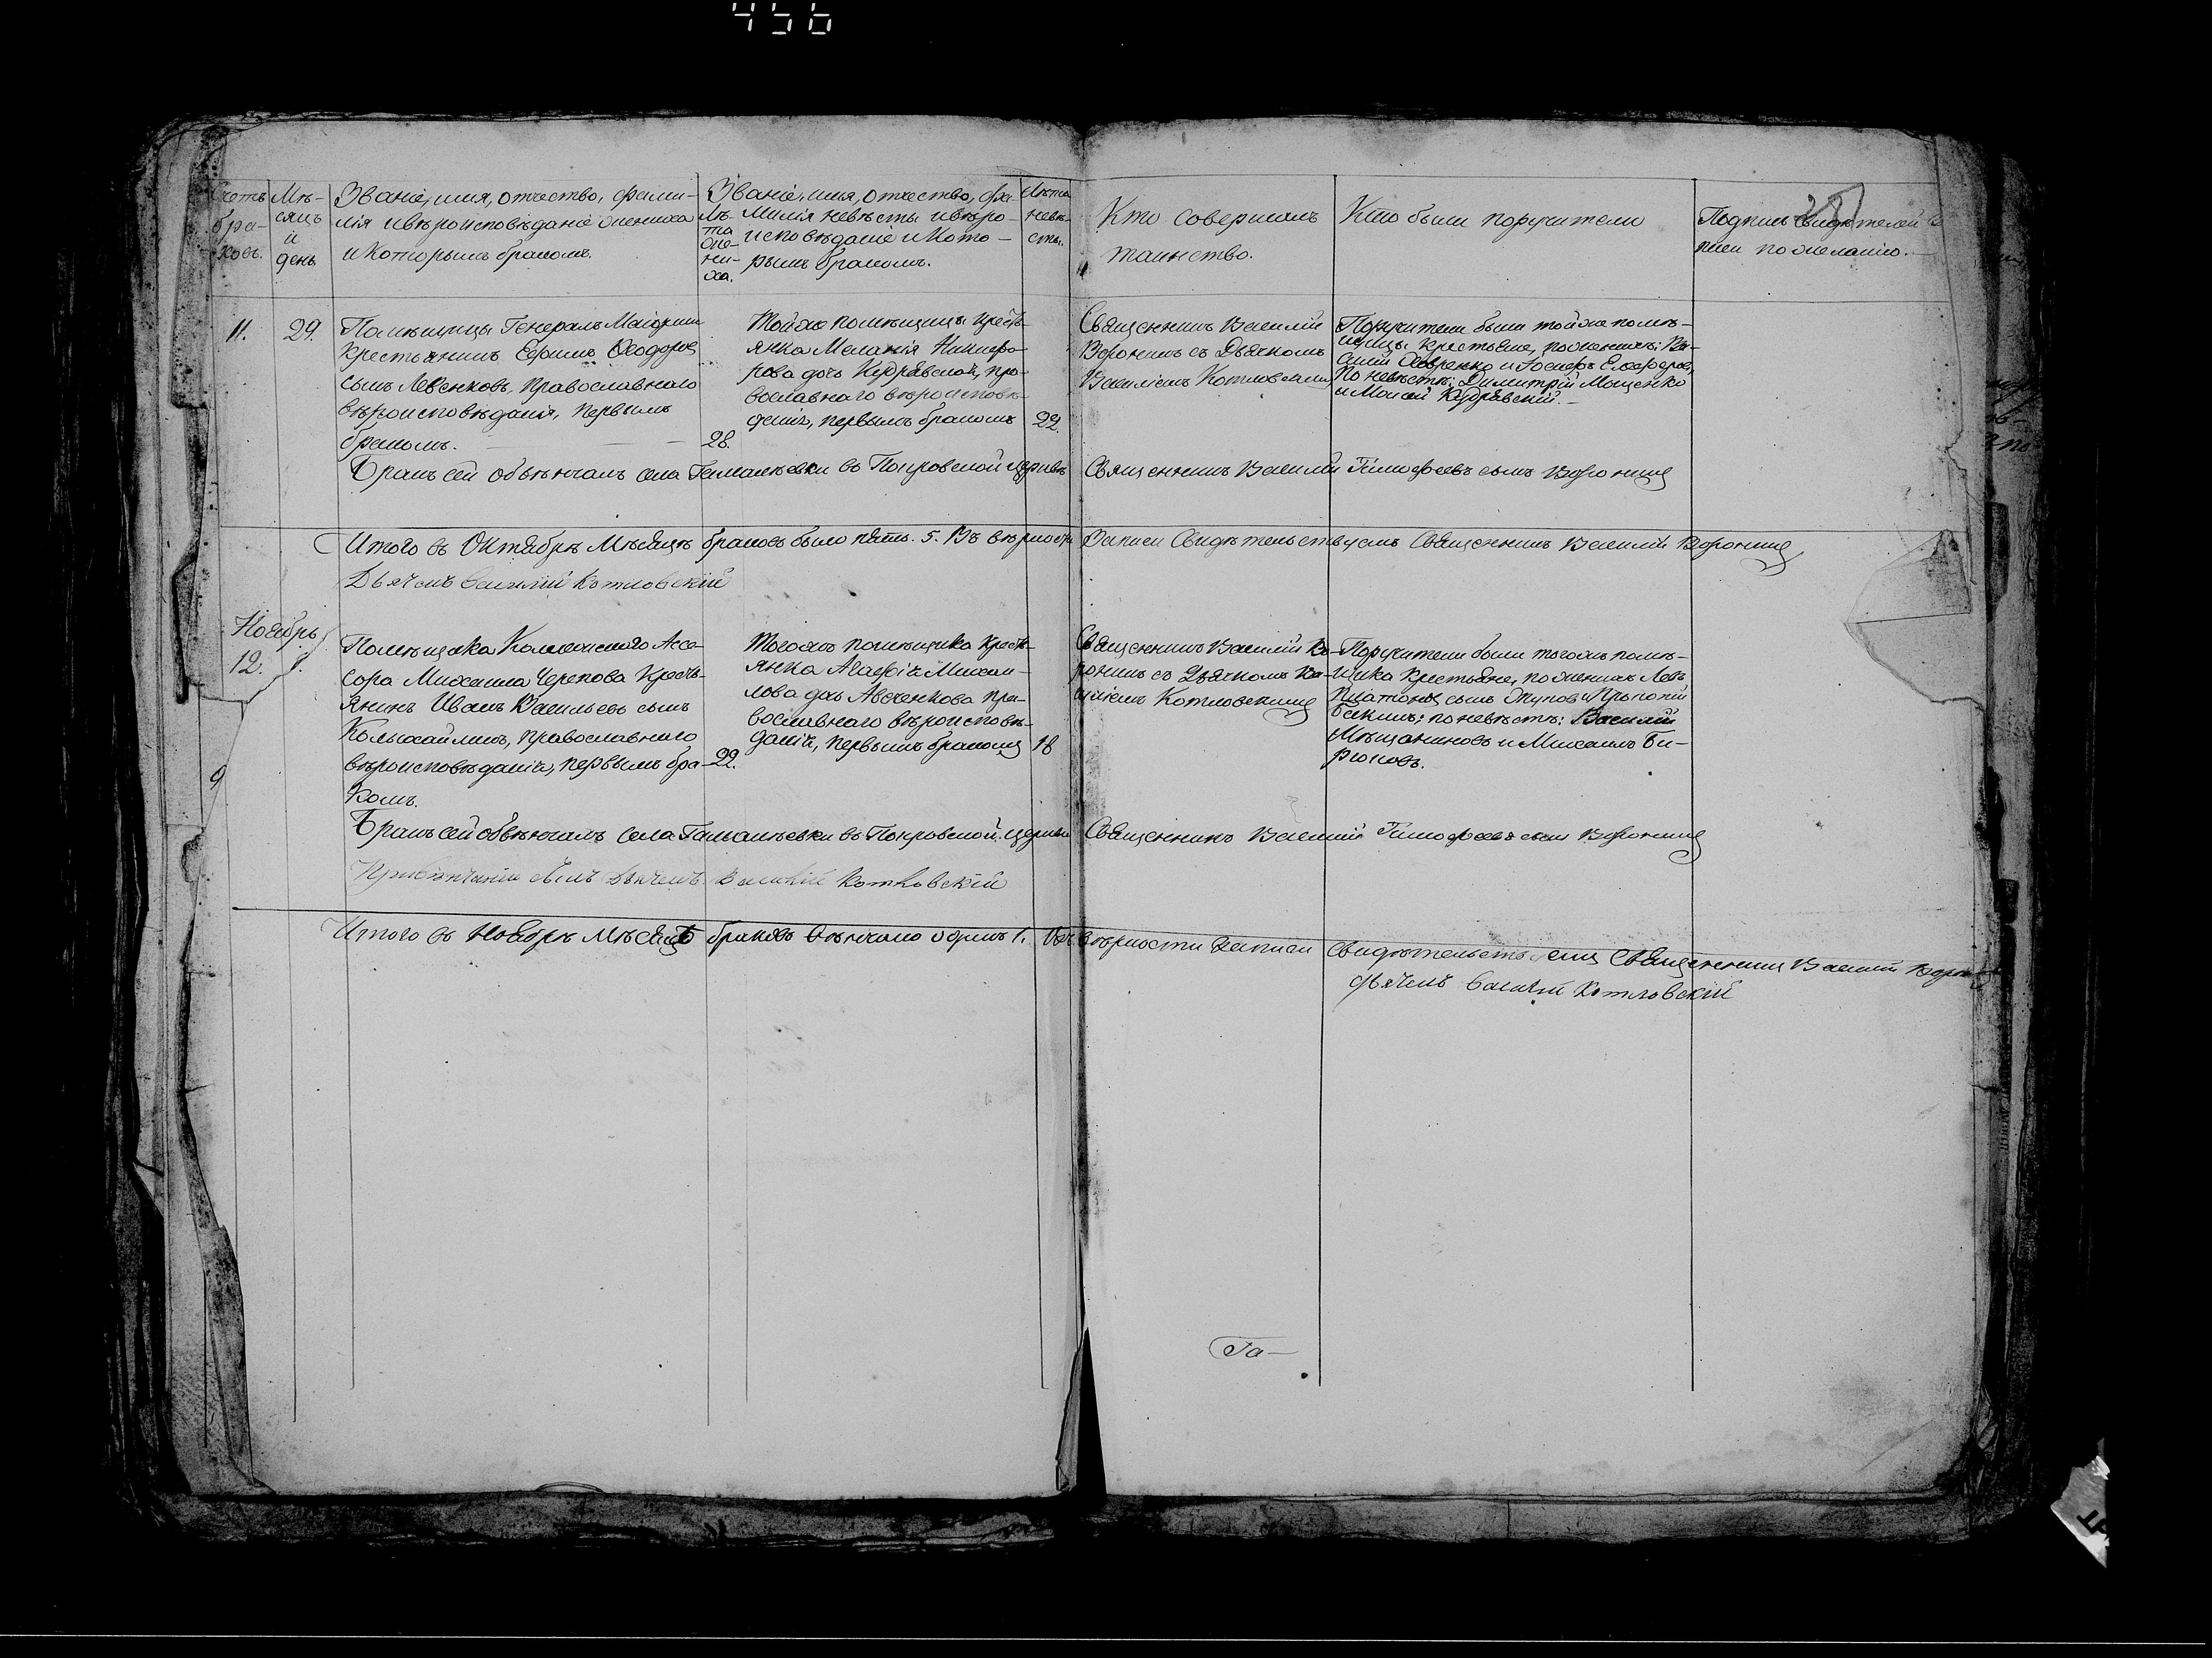 456
Счетъ бра-ковъ.
Мѣ-сяцъ и день.
Званіе, имя, отчество, фами-
лія и вѣроисповѣданіе жениха
и которымъ бракомъ.
Лѣ-та же-ни-ха.
Званіе, имя, отчество, фа-
милія невѣсты и вѣро-
исповѣданіе и кото-
рымъ бракомъ.
Лѣта невѣ-сты.
Кто совершалъ
таинство.
Кто были поручители
Подпись свидѣтелей
писи по желанію.
11. 29.
Помѣщицы Генералъ Маіорши
крестьянинъ Ефимъ Ѳеодоровъ
сынъ Левенковъ, православнаго
вѣроисповѣданія, первымъ
бракомъ.
28.
Тойже помѣщицы кресть-
янка Меланія Никифо-
рова дочь, пра-
вославнаго вѣроисповѣ-
данія, первымъ бракомъ
22.
Священникъ Василій
Воронинъ съ Дьячкомъ
Василіемъ Котловскимъ
Поручители были тойже помѣ-
щицы крестьяне, по женихѣ: Ва-
силій и
По невѣстѣ: Димитрій Мощенко
и Моисей Кудравскій.
Бракъ сей обвѣнчалъ села въ Покровской церкви Священникъ Василій Тимофеевъ сынъ Воронинъ
Итого въ Октябрѣ Мѣсяцѣ браковъ было пять. 5. Въ вѣрности Записи Свидѣтельствуемъ Священникъ Василій Воронинъ
Дьячекъ Василій Котловскій
Ноябрь
12. 1.
Помѣщика Коллежскаго Асса-
сора Михаила Черепова кресть-
янинъ Иванъ Васильевъ сынъ
православнаго
вѣроисповѣданія, первымъ бра-
комъ.
22.
Тогожъ помѣщика кресть-
янка Агафія Михаи-
лова дочь Авсеенкова пра-
вославнаго вѣроисповѣ-
данія, первымъ бракомъ
18
Священникъ Василій Во-
ронинъ съ Дьячкомъ Ва-
силіемъ Котловскимъ
Поручители были тогожъ помѣ-
щика крестьяне, по женихѣ Левъ
Платоновъ сынъ и Прокопій
по невѣстѣ: Василій
Мѣщаниновъ и Михаилъ Би-
рюковъ.
Бракъ сей обвѣнчалъ села въ Покровской церкви Священникъ Василій Тимофеевъ сынъ Воронинъ
При вѣнчаніи былъ Дьячекъ Василій Котловскій
Итого въ Ноябрѣ Мѣсяцѣ браковъ вѣнчано одинъ 1. Въ вѣрности Записи Свидѣтельствуемъ Священникъ Василій Воронинъ
дьячекъ Василій Котловскій
Га-